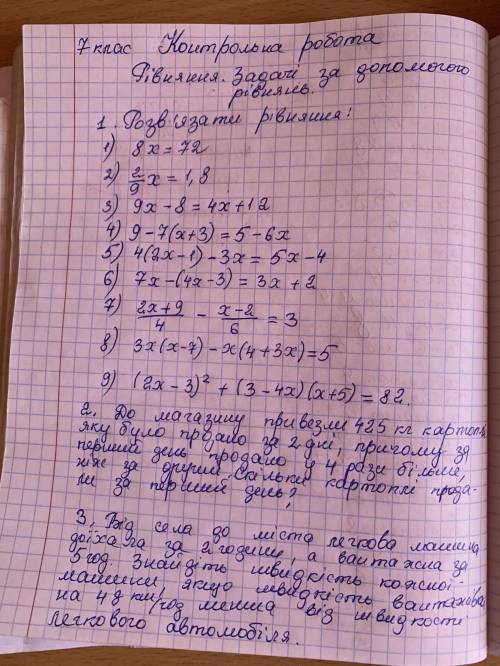 7 клас Контрольна робота
Рівняння. Задачі за допомогою
рівнянь.
1. Розв'язати рівняння!
1) 8x = 72
2) 2/9 x = 1,8
3) 9x - 8 = 4x + 12
4) 9 - 7(x + 3) = 5 - 6x
5) 4(2x - 1) - 3x = 5x - 4
6) 7x - (4x - 3) = 3x + 2
7) (2x + 9)/4 - (x - 2)/6 = 3
8) 3x(x - 7) - x(4 + 3x) = 5
9) (2x - 3)² + (3 - 4x)(x + 5) = 82.
2. До магазину привезли 425 кг картоплі
яку було продано за 2 дні, причому за
перший день продано у 4 рази більше,
ніж за другий. Скільки картоплі прода-
ли за перший день?
3. Від села до міста легкова машина
доїхала за 2 години, а вантажна за
5 год. Знайдіть швидкість кожної
машини, якщо швидкість вантажівки
на 48 км/год менша від швидкості
легкового автомобіля.